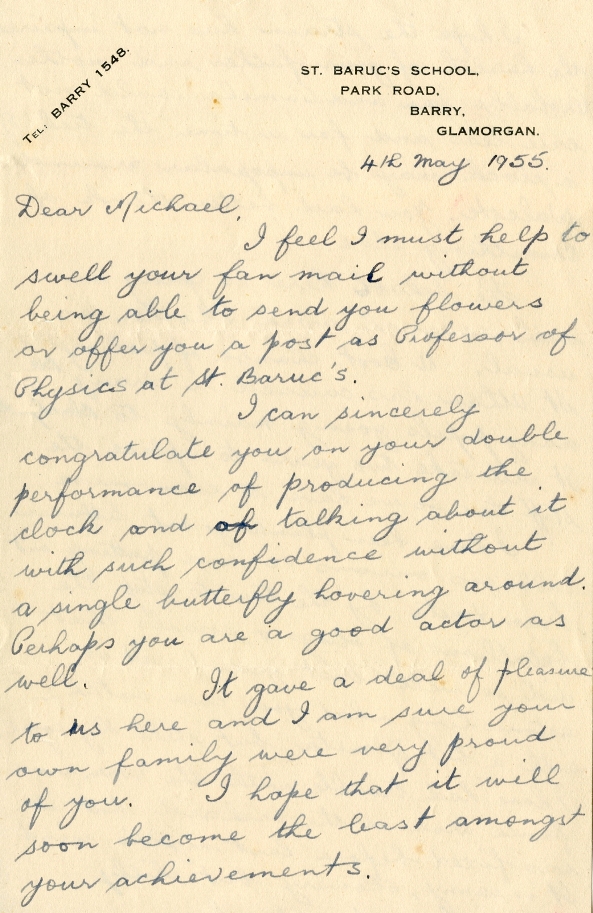 TEL: BARRY 1548.
ST. BARUC'S SCHOOL,
PARK ROAD,
BARRY,
GLAMORGAN.
4th May 1955.
Dear Michael,
I feel I must help to
swell your fan mail without
being able to send you flowers
or offer you a post as Professor of
Physics at St. Baruc's.
I can sincerely
congratulate you on your double
performance of producing the
clock and of talking about it
with such confidence without
a single butterfly hovering around.
Perhaps you are a good actor as
well. It gave a deal of pleasure
to us here and I am sure your
own family were very proud
of you. I hope that it will
soon become the least amongst
your achievements.